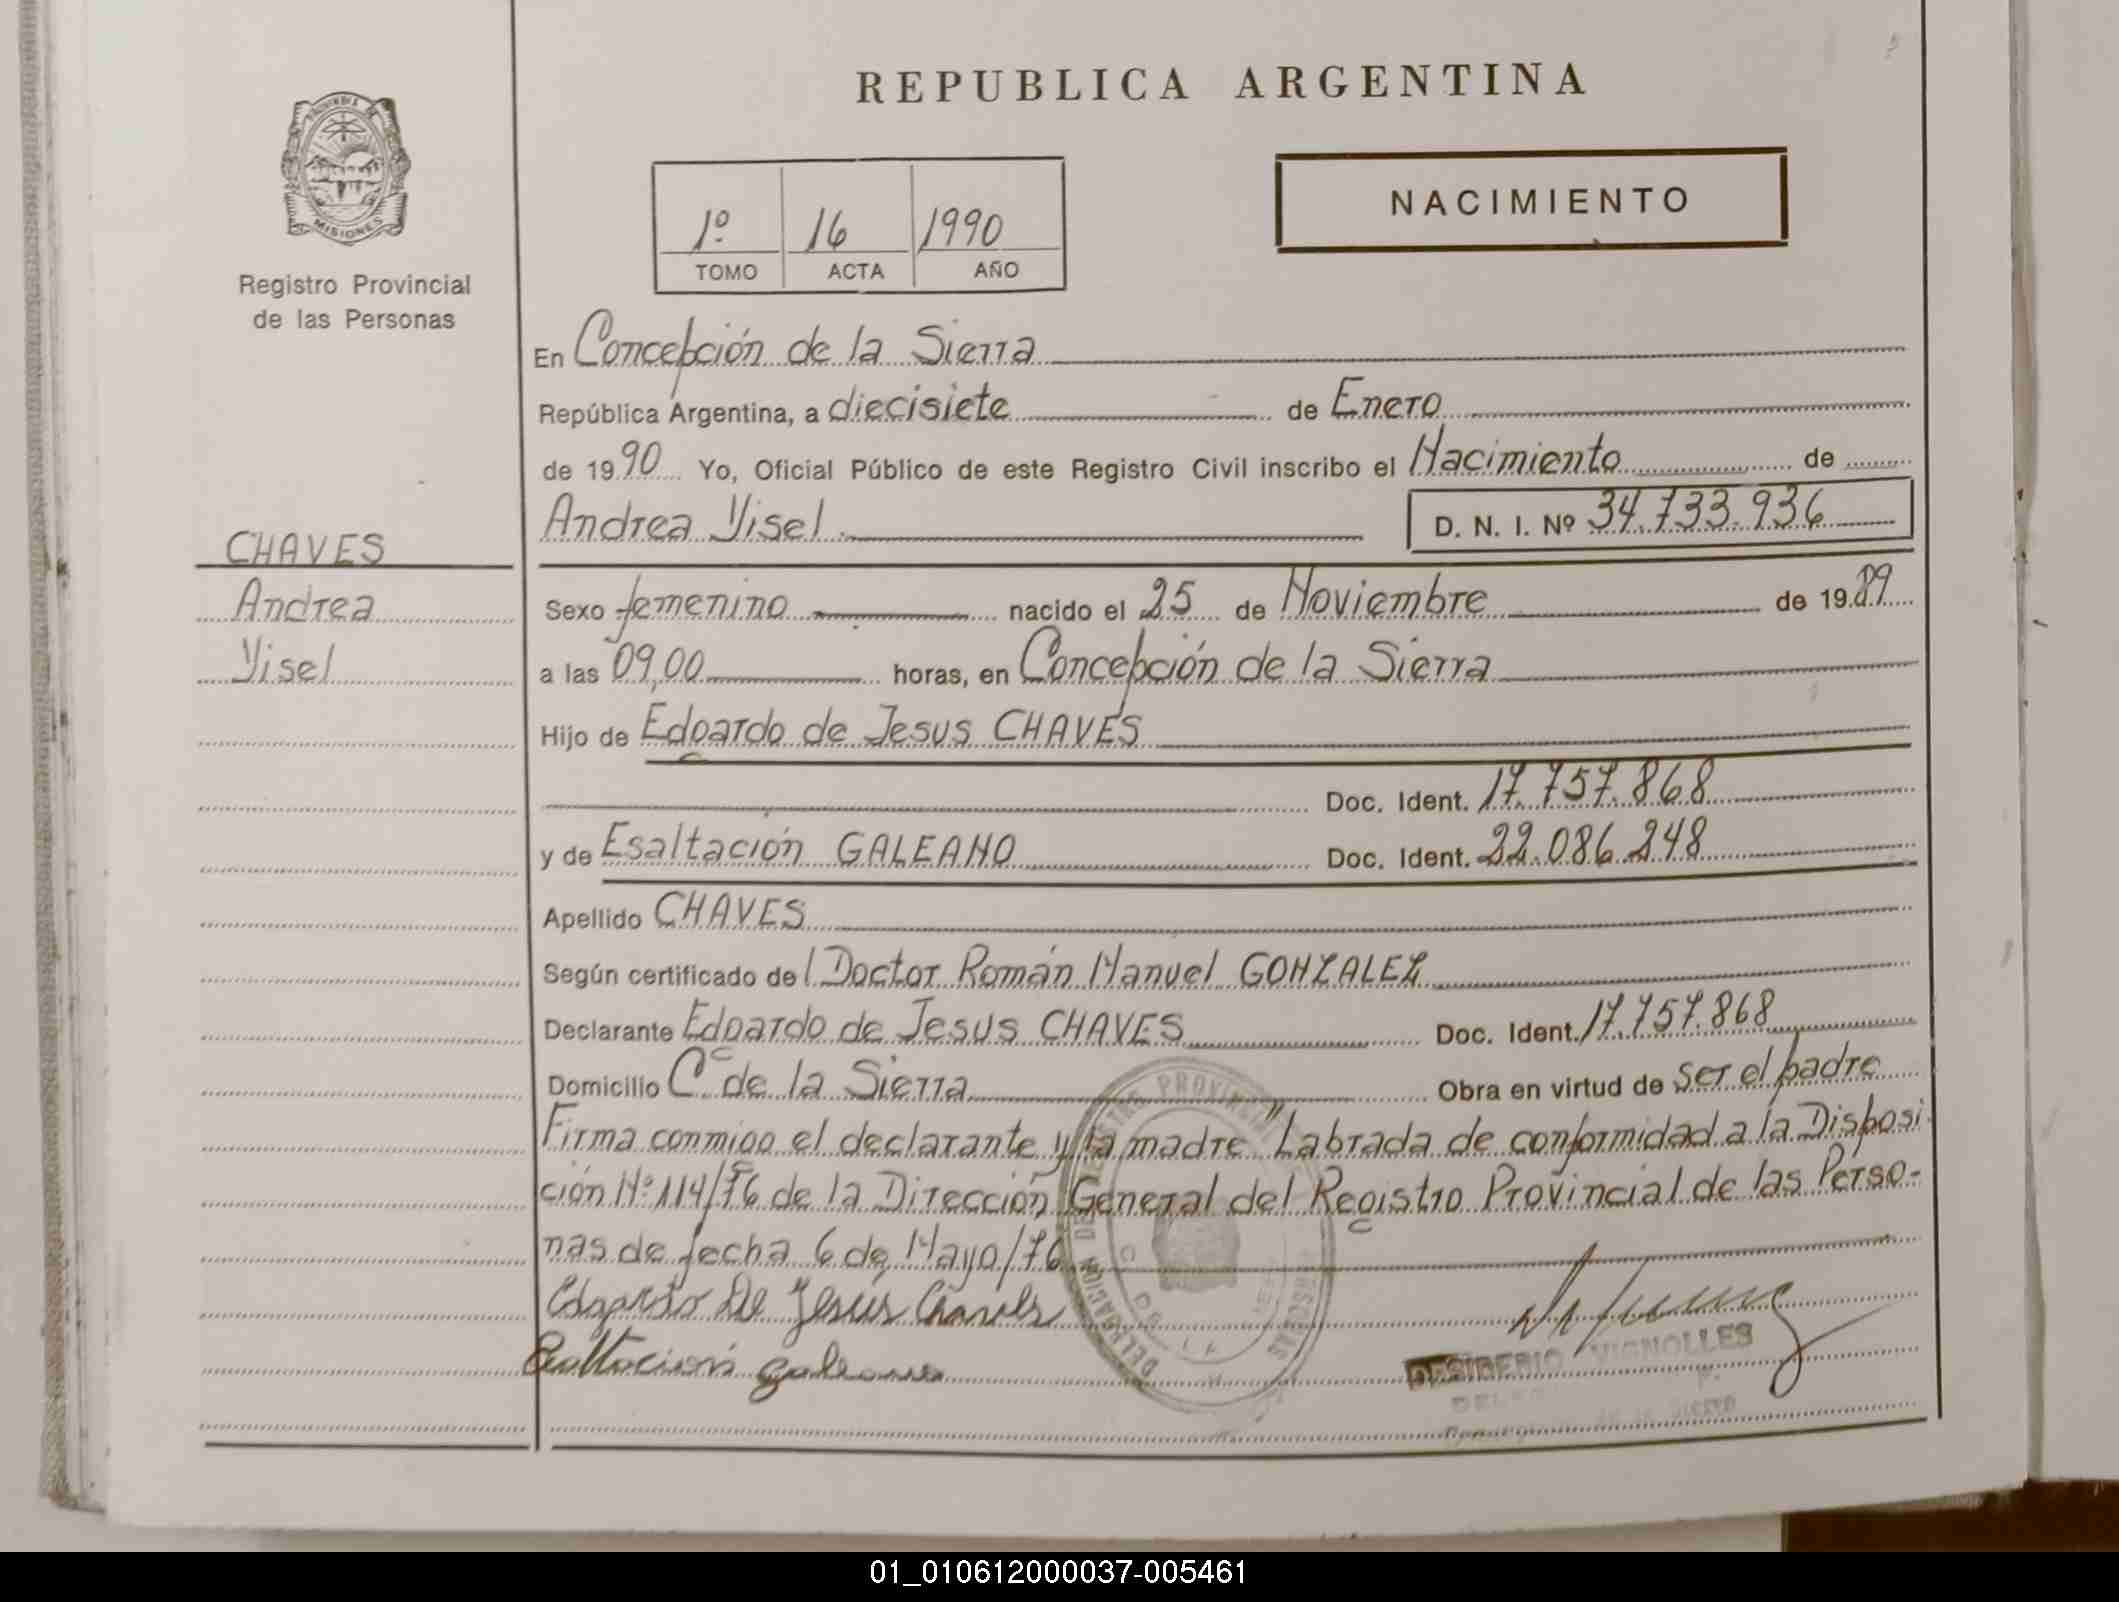 REPUBLICA ARGENTINA
PROVINCIA
MISIONES
Registro Provincial
de las Personas
1º 16 1990
TOMO ACTA AÑO
NACIMIENTO
En Concepción de la Sierra
República Argentina, a diecisiete de Enero
de 1990 Yo, Oficial Público de este Registro Civil inscribo el Nacimiento de
Andrea Yisel D. N. I. Nº 34.733.936
CHAVES
Andrea
Yisel
Sexo femenino nacido el 25 de Noviembre de 1989
a las 09,00 horas, en Concepción de la Sierra
Hijo de Edgardo de Jesus CHAVES
Doc. Ident. 17.757.868
y de Esaltación GALEANO Doc. Ident. 22.086.248
Apellido CHAVES
Según certificado del Doctor Román Manuel GONZALEZ
Declarante Edgardo de Jesus CHAVES Doc. Ident. 17.757.868
Domicilio Cc. de la Sierra Obra en virtud de ser el padre
Firma conmigo el declarante y la madre "Labrada de conformidad a la Disposi
ción Nº 114/76 de la Dirección General del Registro Provincial de las Perso-
nas de fecha 6 de Mayo/76
Edgardo De Jesus Chaves
Esaltación Galeano
DESIDERIO VIGNOLLES
01_010612000037-005461